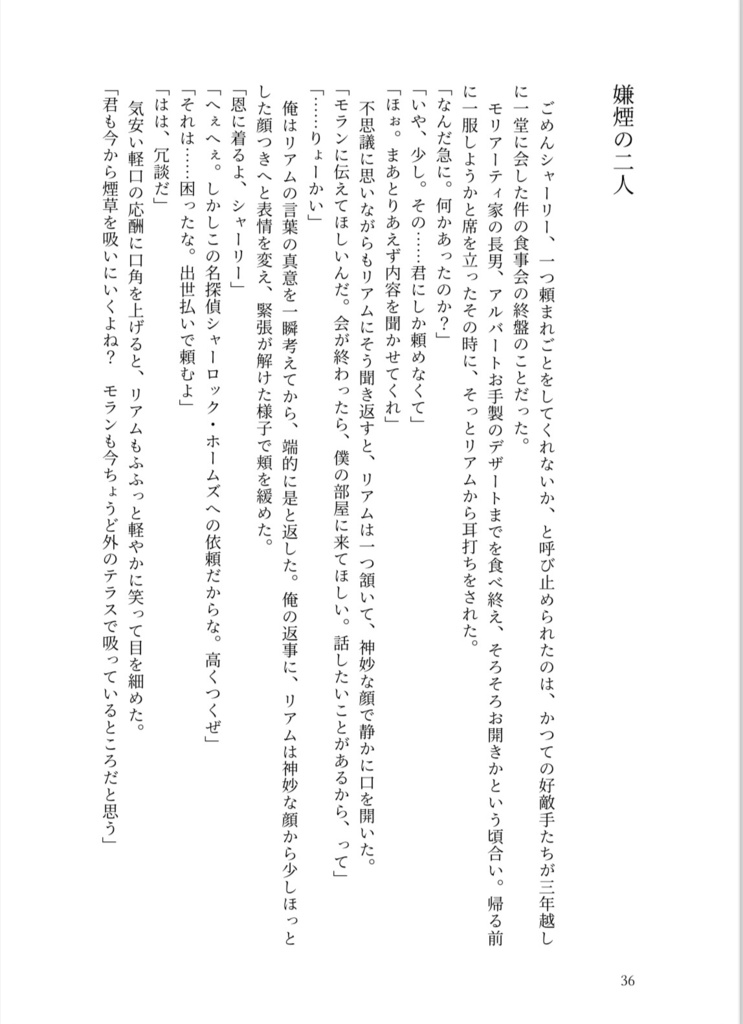 嫌煙の二人
　ごめんシャーリー、一つ頼まれごとをしてくれないか、と呼び止められたのは、かつての好敵手たちが三年越し
に一堂に会した件の食事会の終盤のことだった。
　モリアーティ家の長男、アルバートお手製のデザートまでを食べ終え、そろそろお開きかという頃合い。帰る前
に一服しようかと席を立ったその時に、そっとリアムから耳打ちをされた。
「なんだ急に。何かあったのか？」
「いや、少し。その……君にしか頼めなくて」
「ほぉ。まあとりあえず内容を聞かせてくれ」
　不思議に思いながらもリアムにそう聞き返すと、リアムは一つ頷いて、神妙な顔で静かに口を開いた。
「モランに伝えてほしいんだ。会が終わったら、僕の部屋に来てほしい。話したいことがあるから、って」
「……りょーかい」
　俺はリアムの言葉の真意を一瞬考えてから、端的に是と返した。俺の返事に、リアムは神妙な顔から少しほっと
した顔つきへと表情を変え、緊張が解けた様子で頬を緩めた。
「恩に着るよ、シャーリー」
「へぇへぇ。しかしこの名探偵シャーロック・ホームズへの依頼だからな。高くつくぜ」
「それは……困ったな。出世払いで頼むよ」
「はは、冗談だ」
　気安い軽口の応酬に口角を上げると、リアムもふふっと軽やかに笑って目を細めた。
「君も今から煙草を吸いにいくよね？　モランも今ちょうど外のテラスで吸っているところだと思う」
36